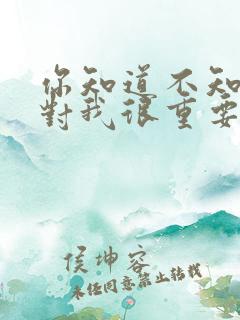 你知道不知
對我很重要
侯坤容
未经同意禁止转载